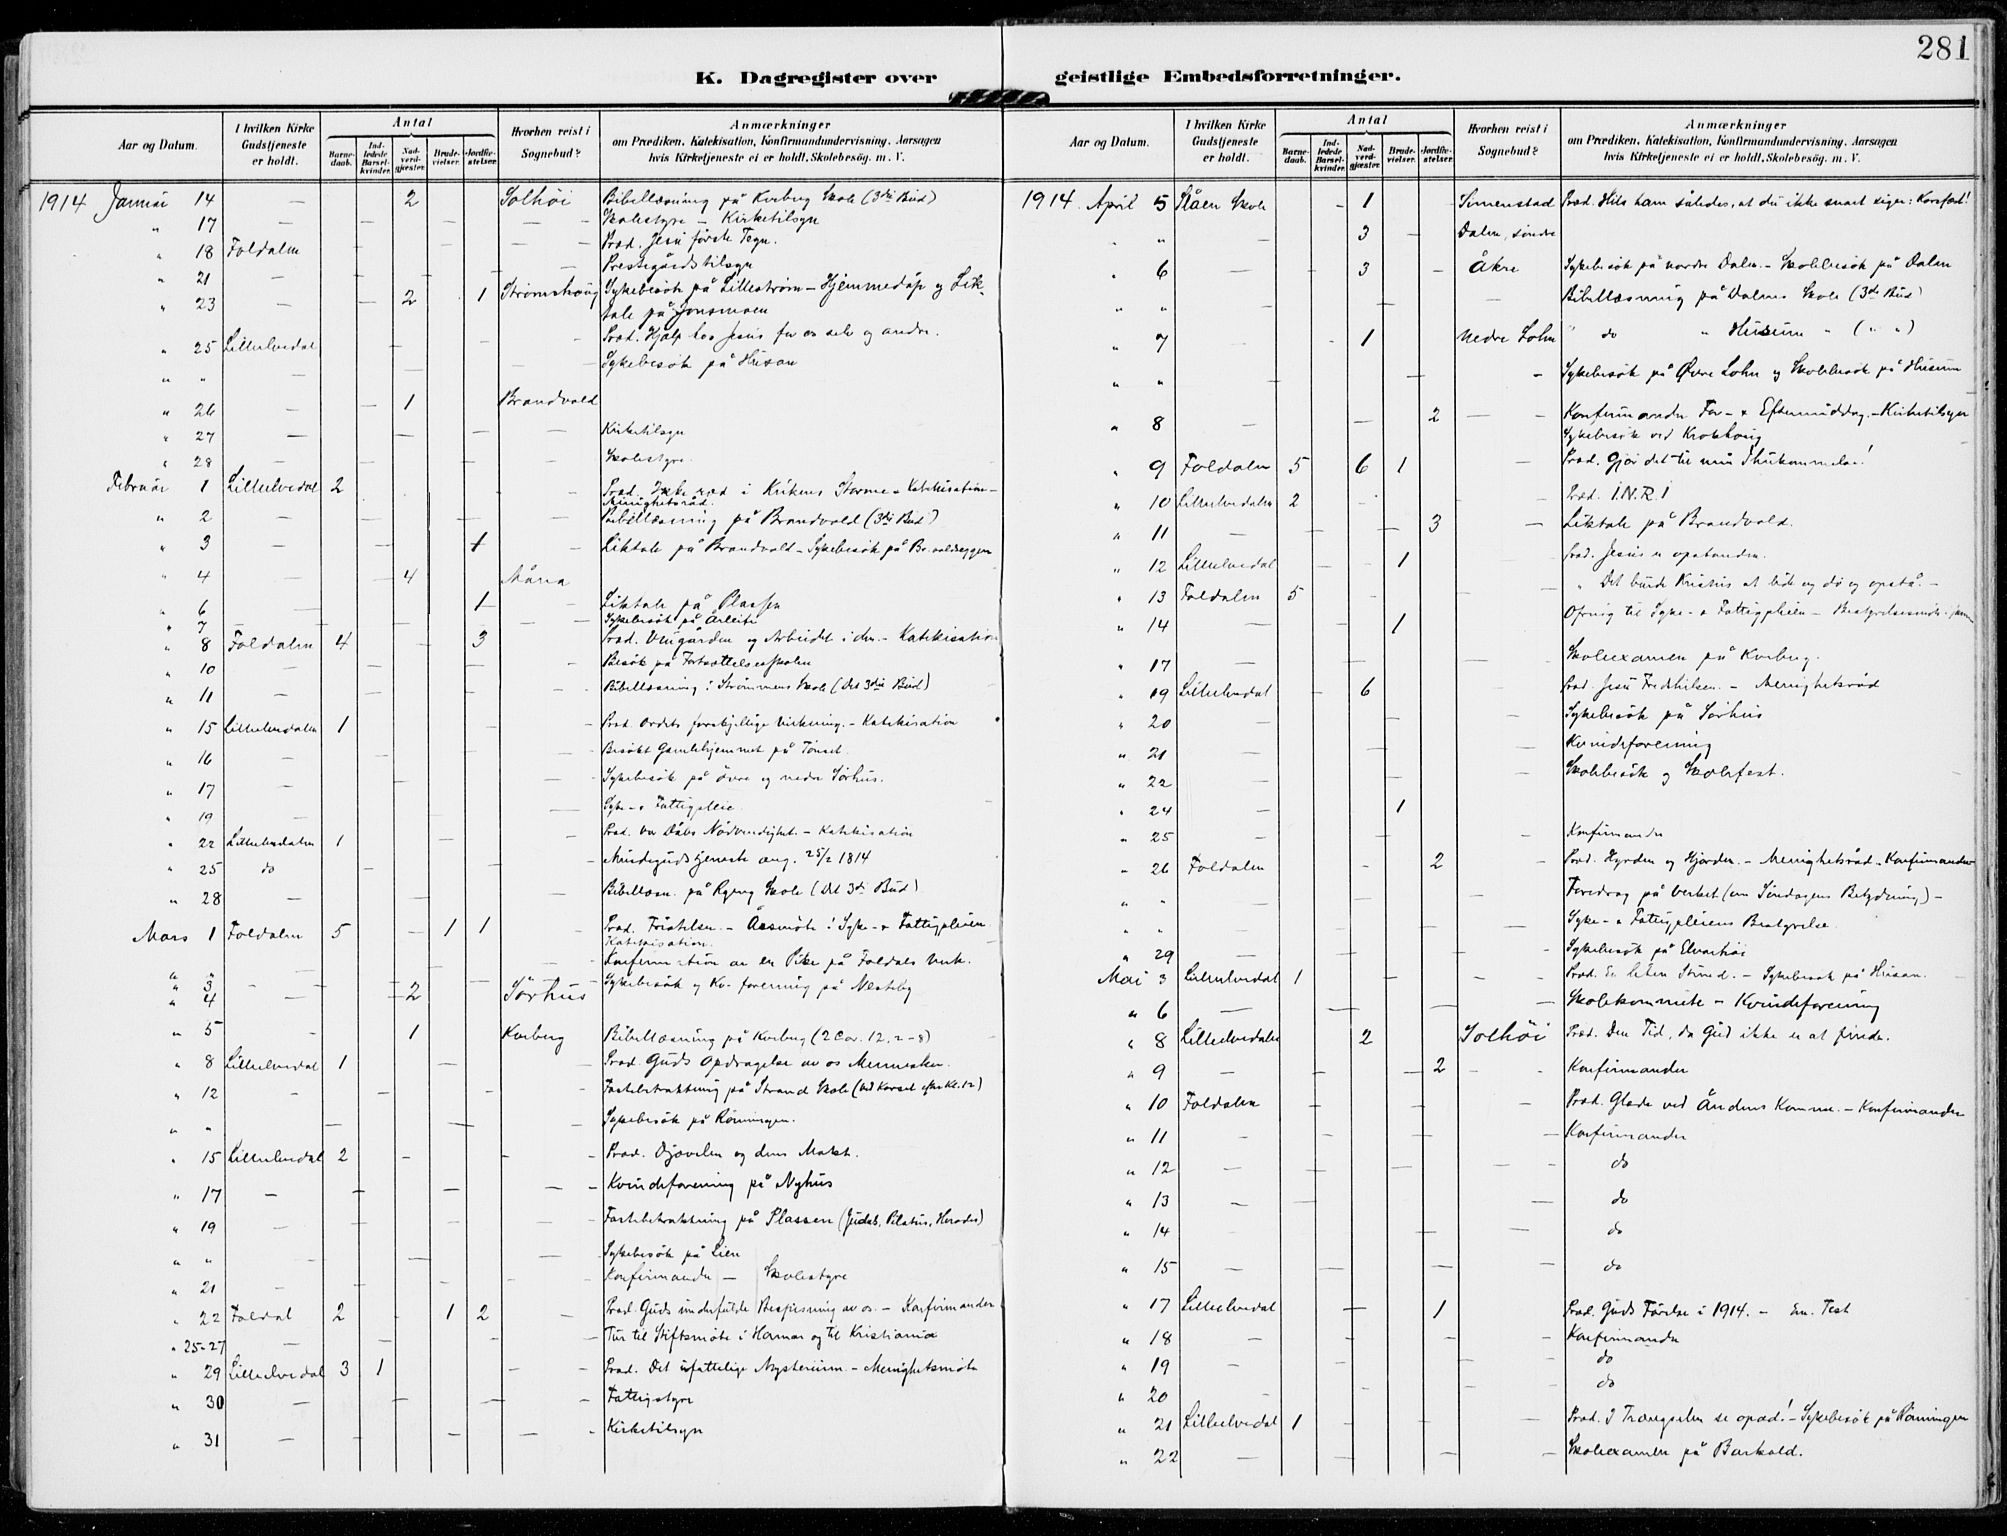 281
K. Dagregister over geistlige Embedsforretninger.
Aar og Datum. I hvilken Kirke Gudstjeneste er holdt. Antal Barnedaab. Indledede Barselkvinder. Nadverdgjæster. Brudevielser. Jordfæstelser. Hvorhen reist i Sognebud? Anmærkninger om Prædiken, Katekisation, Konfirmandundervisning, Aarsagen hvis Kirketjeneste ei er holdt, Skolebesøg. m. V.
1914 Januar 14 — 2 Solhöi Bibellæsning på Korberg Skole (3die Bud)
" 17 — Skolestyre — Kirketilsyn
" 18 Foldalen Præd. Jesu første Tegn.
" 21 — Prestegårdstilsyn
" 23 — 2 1 Strömshaug Sykebesök på Lilleström — Hjemmedåp og Lik-
tale på Jonsmoen
" 25 Lilleelvedal Præd. Hjælp hos Jesus for os selv og andre.
" " — Sykebesök på Husan
" 26 — 1 Brandvold
" 27 — Kirketilsyn
" 28 — Skolestyre.
Februar 1 Lilleelvedal 2 Præd. Ikke ræd i Kirkens Storme — Katekisation —
Menighetsråd.
" 2 — Bibellæsning på Brandvold (3die Bud)
" 3 — 1 Liktale på Brandvold — Sykebesök på
" 4 — 4
" 6 — 1 Liktale på Plassen
" 7 — Sykebesök på
" 8 Foldalen 4 3 Præd. Vingården og Arbeidet i den. — Katekisation
" 10 — Besök på Fortsættelsesskolen
" 11 — Bibellæsning i Strömmens Skole (Det 3die Bud)
" 15 Lilleelvedalen 1 Præd. Ordets forskjellige Virkning. — Katekisation
" 16 — Besökt Gamlehjemmet på Tönset.
" 17 — Sykebesök på övre og nedre Sörhus.
" 19 — Syke- & Fattigpleie.
" 22 Lilleelvedalen 1 Præd. Vor Dåbs Nödvendighet. — Katekisation
" 25 do Mindegudstjeneste ang. 25/2 1814
" 28 — Bibellæsn. på Ryeng Skole (Det 3die Bud)
Mars 1 Foldalen 5 1 1 Præd. Fristelsen. — Årsmöte i Syke- & Fattigpleien
Katekisation.
" " Konfirmation av en Pike på Foldals Verk.
" 3 — Sykebesök og Kv. forening på Nesteby
" 4 — 2 Sörhus
" 5 1 Korberg Bibellæsning på Korberg (2 Cor. 12, 2-8)
" 8 Lilleelvedal 1 Præd. Guds Opdragelse av os Mennesker.
" 12 — Fastebetraktning på Strand Skole (Ved Korset efter Kl. 12)
" " Sykebesök på Röningen.
" 15 Lilleelvedal 2 Præd. Djævelen og dens Makt.
" 17 — Kvindeforening på Nyhus
" 19 — Fastebetraktning på Plassen (Judas, Pilatus, Herodes)
" " Sykebesök på Lien
" 21 — Konfirmander — Skolestyre
" 22 Foldal 2 1 2 Præd. Guds underfulde Bespisning av os. — Konfirmander
" 25-27 Tur til Stiftsmöte i Hamar og til Kristiania
" 29 Lilleelvedal 3 1 Præd. Det ufattelige Mysterium — Menighetsmöte
" 30 — Fattigstyre
" 31 — Kirketilsyn
Aar og Datum. I hvilken Kirke Gudstjeneste er holdt. Antal Barnedaab. Indledede Barselkvinder. Nadverdgjæster. Brudevielser. Jordfæstelser. Hvorhen reist i Sognebud? Anmærkninger om Prædiken, Katekisation, Konfirmandundervisning, Aarsagen hvis Kirketjeneste ei er holdt, Skolebesög. m. V.
1914 April 5 Slåen Skole 1 Simenstad Præd. Hils ham således, at du ikke snart siger: Korsfæst!
" " — 3 Dalen, söndre
" 6 — 3 Åkre Sykebesök på nordre Dalen. — Skolebesök på Dalen
" " Bibellæsning på Dalens Skole (3die Bud)
" 7 1 Nedre Lohn " do " Husum " ( " " )
" " Sykebesök på Övre Lohn og Skolebesök på Husum
" 8 — 2 Konfirmander For- & Eftermiddag. — Kirketilsyn
Sykebesök ved Krokhaug
" 9 Foldalen 5 6 1 Præd. Gjør det til min Ihukommelse!
" 10 Lilleelvedalen 2 Præd. I.N.R.I
" 11 — 3 Liktale på Brandvold.
" 12 Lilleelvedal 1 Præd. Jesus er opstanden.
" 13 Foldalen 5 " Det burde Kristus at lide og dö og opstå. —
" 14 — 1 Ofring til Syke- & Fattigpleien — Bestyrelsesmöte
" 17 — Skoleexamen på Korberg.
" 19 Lilleelvedal 6 Præd. Jesu Fredhilsen. — Menighetsråd
" 20 Sykebesök på Sörhus
" 21 — Kvindeforening
" 22 — Skolebesök og Skolefest.
" 24 — 1
" 25 — Konfirmander
" 26 Foldalen 2 Præd. Hyrden og Hjorden. — Menighetsråd — Konfirmander
" " Foredrag på Verket (om Söndagens Betydning) —
" " Syke- & Fattigpleiens Bestyrelse.
" 29 — Sykebesök på
Mai 3 Lilleelvedal 1 Præd. En liten Stund. — Sykebesök på Husan.
" 6 — Skolekommite — Kvindeforening
" 8 Lilleelvedalen 2 Solhöi Præd. Den Tid, da Gud ikke er at finde.
" 9 — 2 Konfirmander
" 10 Foldalen Præd. Glæde ved Åndens Komme. — Konfirmander
" 11 — Konfirmander
" 12 — do
" 13 — do
" 14 — do
" 15 — do
" 17 Lilleelvedal 1 Præd. Guds Förelse i 1914. — Em. Test
" 18 — Konfirmander
" 19 — do
" 20 — do
" 21 Lilleelvedal 1 Præd. I Trængselen se opad! — Sykebesök på Röiningen
" 22 — Skoleexamen på Barkald.